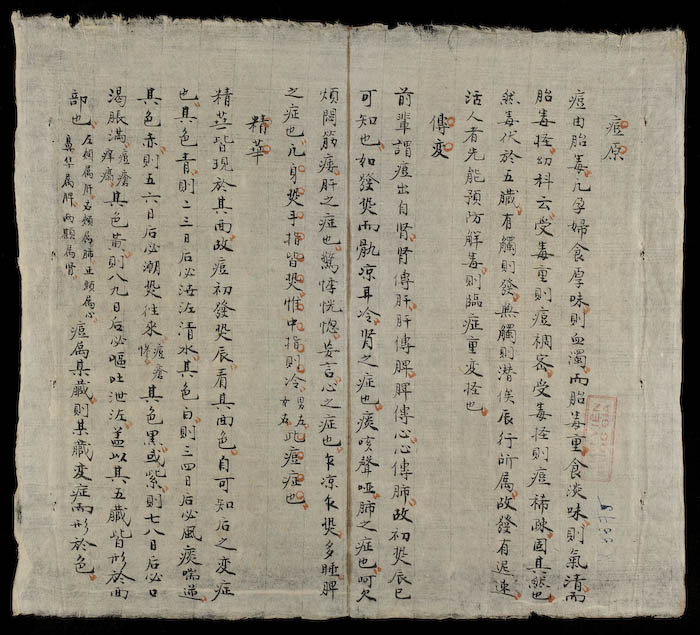 痘原
痘由胎毒凡孕婦食厚味則血濁而胎毒重食淡味則氣清而
胎毒怪幼科云受毒重則痘稠密受毒怪則痘稀疎固其然也
然毒伏於五臟有觸則發無觸則潜俟辰行所属故發有迟速
活人者先能預防解毒則臨症重変怪也
傳変
前輩謂痘出自肾肾傳肝肝傳脾脾傳心心傳肺故初熒辰已
可知也如發熒而骩凉耳冷肾之症也痰咳聲哑肺之症也呵欠
煩悶筋痿肝之症也驚悸恍惚妄言心之症也乍凉乍熒多睡脾
之症也凢身熒手指皆熒惟中指則冷男左女右此痘症也
精華
精华皆現於其面故痘初發熒辰看其面色自可知后之変症
也其色青則二三日后必泻泄清水其色白則三四日后必風痰喘逆
其色赤則五六日后必潮熒往來痘瘡悸其色黑或紫則七八日后必口
渴脹滿痘瘡痒痛其色黄則八九日后必嘔吐泄泻盖以其五臟皆形於面
部也左頰属肝右頰属肺正額属心鼻华属脾兩頤属肾痘属某臟則某臟変症而形於色